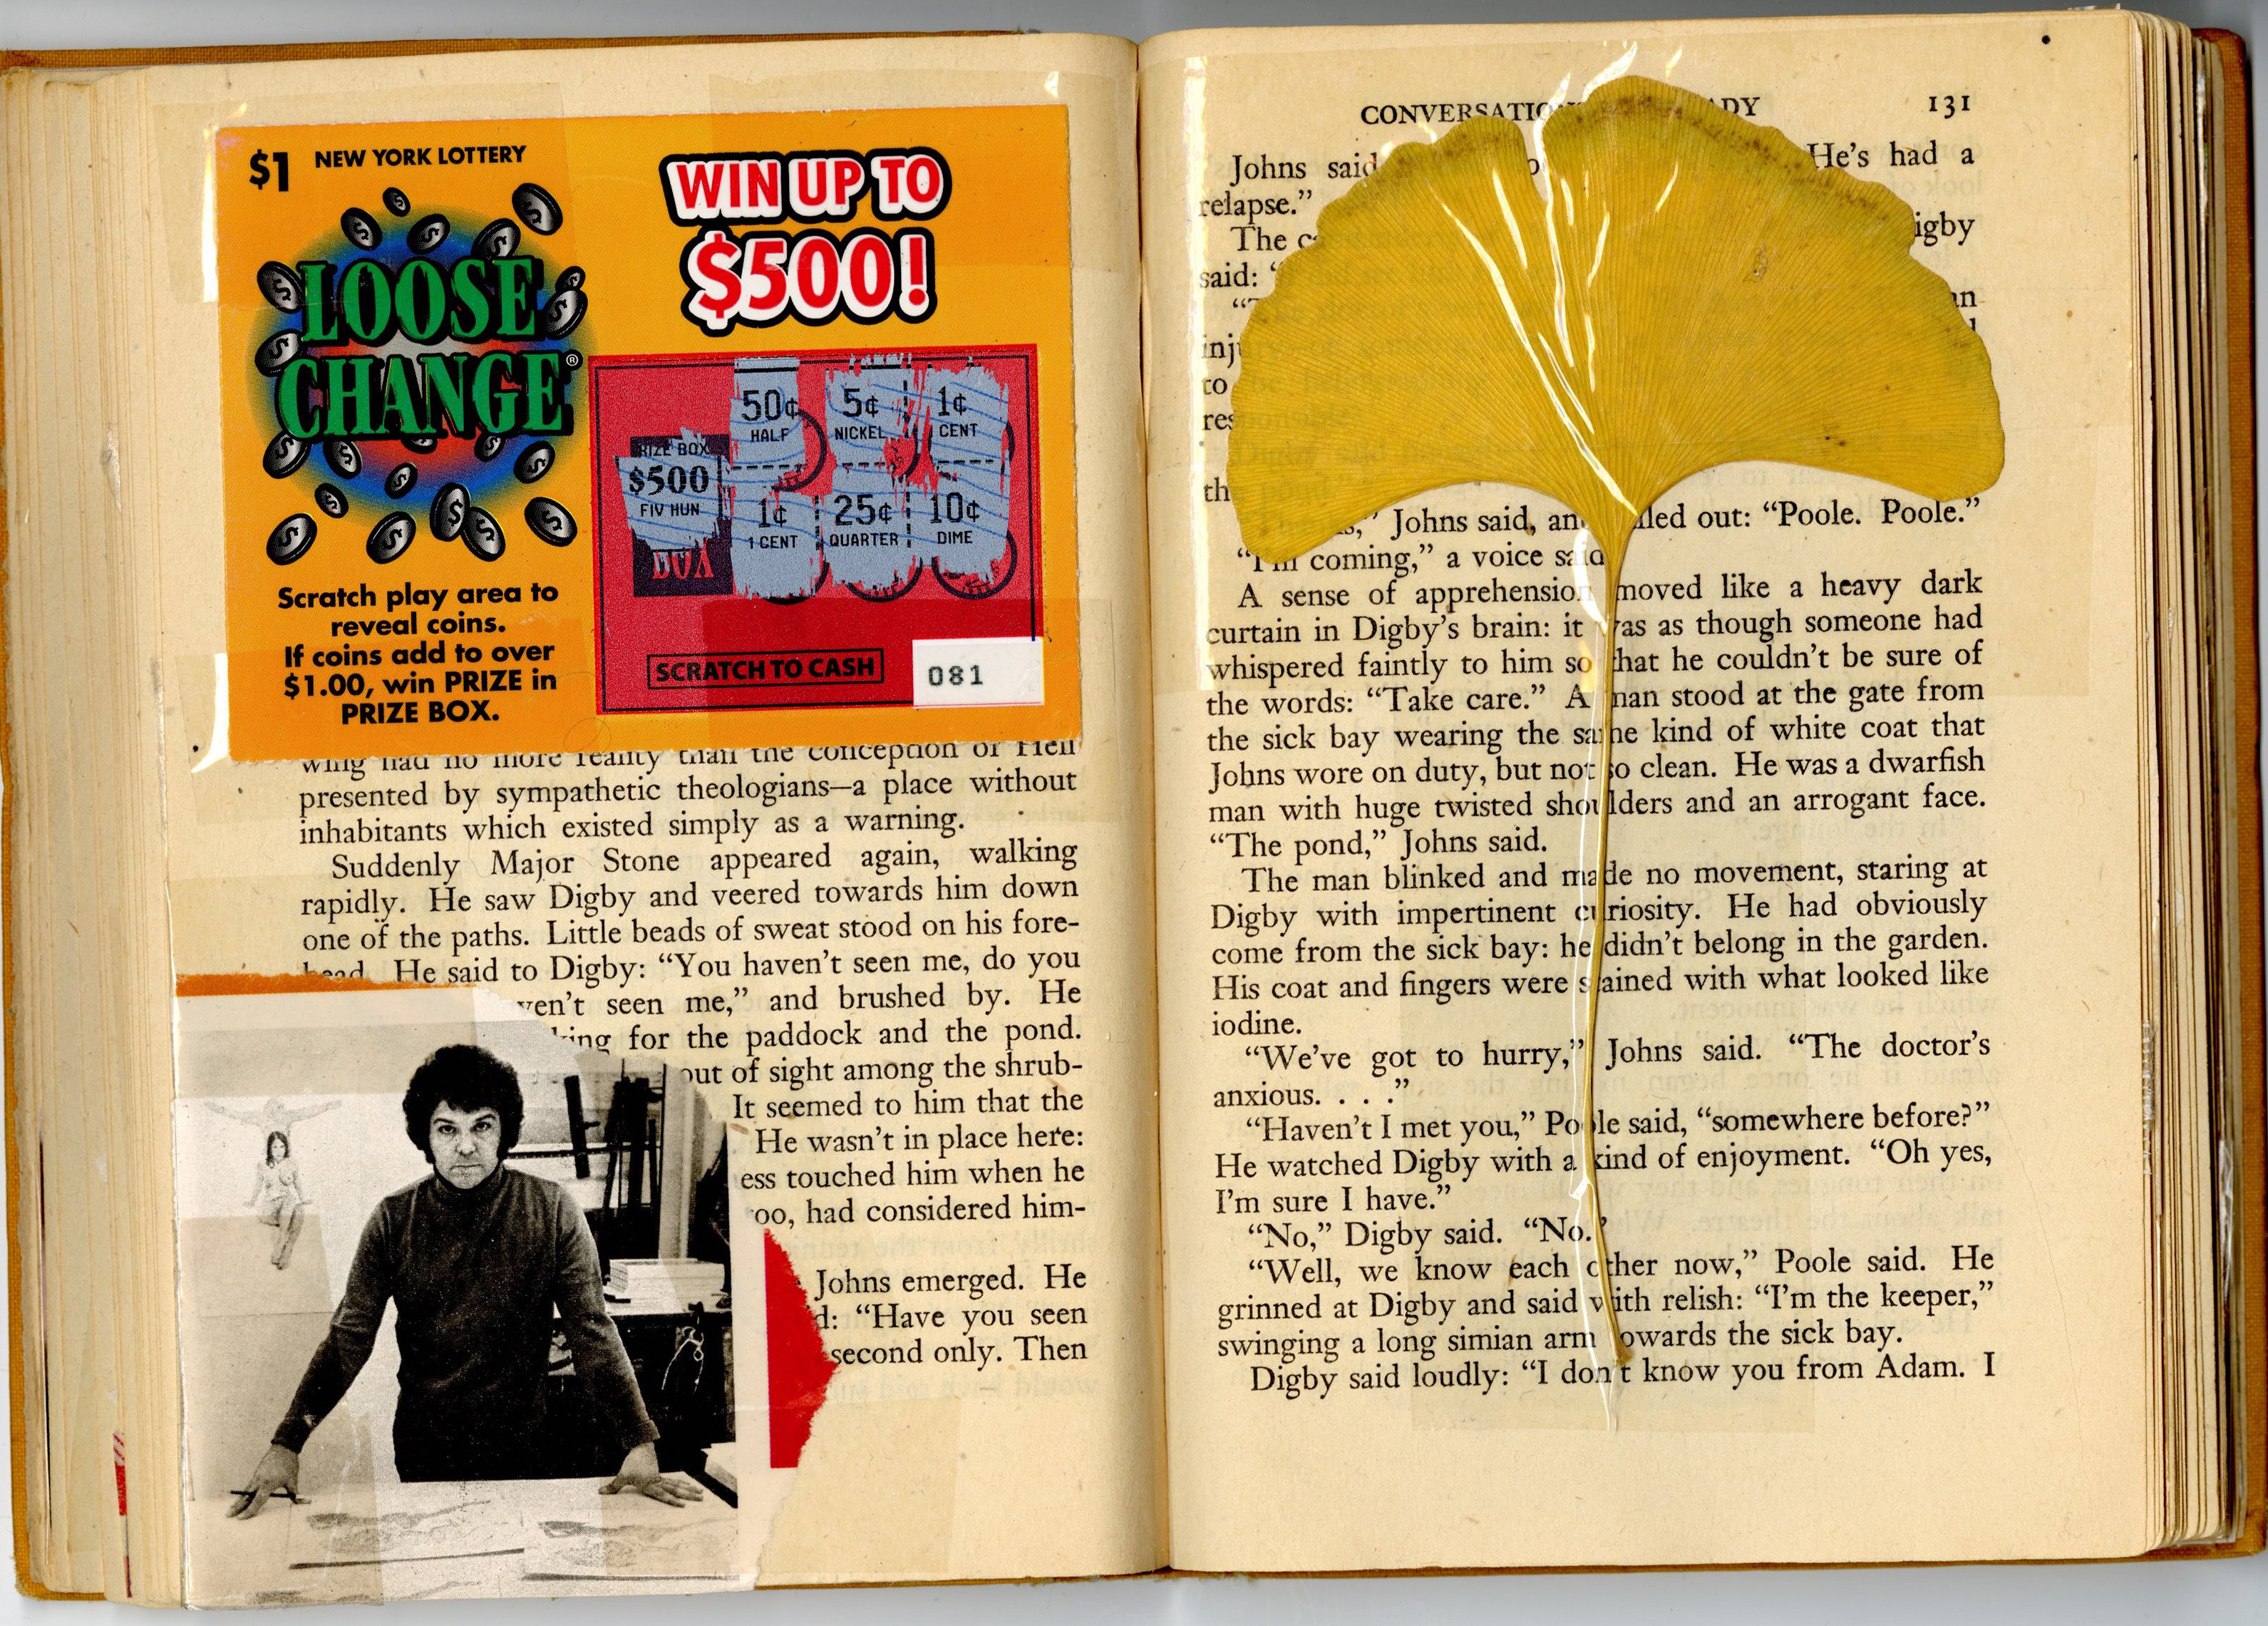 $1 NEW YORK LOTTERY
LOOSE
CHANGE®
Scratch play area to
reveal coins.
If coins add to over
$1.00, win PRIZE in
PRIZE BOX.
WIN UP TO
$500!
50¢ 5¢ 1¢
HALF NICKEL CENT
RIZE BOX
$500
FIV HUN
1¢ 25¢ 10¢
1 CENT QUARTER DIME
BOX
SCRATCH TO CASH
081
wing had no more reality than the conception of Hell
presented by sympathetic theologians—a place without
inhabitants which existed simply as a warning.
Suddenly Major Stone appeared again, walking
rapidly. He saw Digby and veered towards him down
one of the paths. Little beads of sweat stood on his fore-
head. He said to Digby: “You haven't seen me, do you
ven't seen me,” and brushed by. He
king for the paddock and the pond.
out of sight among the shrub-
It seemed to him that the
He wasn't in place here:
ess touched him when he
oo, had considered him-
Johns emerged. He
d: “Have you seen
second only. Then
CONVERSATIO ADY 131
Johns said He's had a
relapse.”
The igby
said: “
an
inj
to
res
th
” Johns said, an lled out: “Poole. Poole.”
“I'm coming,” a voice said
A sense of apprehension moved like a heavy dark
curtain in Digby's brain: it was as though someone had
whispered faintly to him so that he couldn't be sure of
the words: “Take care.” A man stood at the gate from
the sick bay wearing the same kind of white coat that
Johns wore on duty, but not so clean. He was a dwarfish
man with huge twisted shoulders and an arrogant face.
“The pond,” Johns said.
The man blinked and made no movement, staring at
Digby with impertinent curiosity. He had obviously
come from the sick bay: he didn't belong in the garden.
His coat and fingers were stained with what looked like
iodine.
“We've got to hurry,” Johns said. “The doctor's
anxious. . . .”
“Haven't I met you,” Poole said, “somewhere before?”
He watched Digby with a kind of enjoyment. “Oh yes,
I'm sure I have.”
“No,” Digby said. “No.”
“Well, we know each other now,” Poole said. He
grinned at Digby and said with relish: “I'm the keeper,”
swinging a long simian arm towards the sick bay.
Digby said loudly: “I don't know you from Adam. I